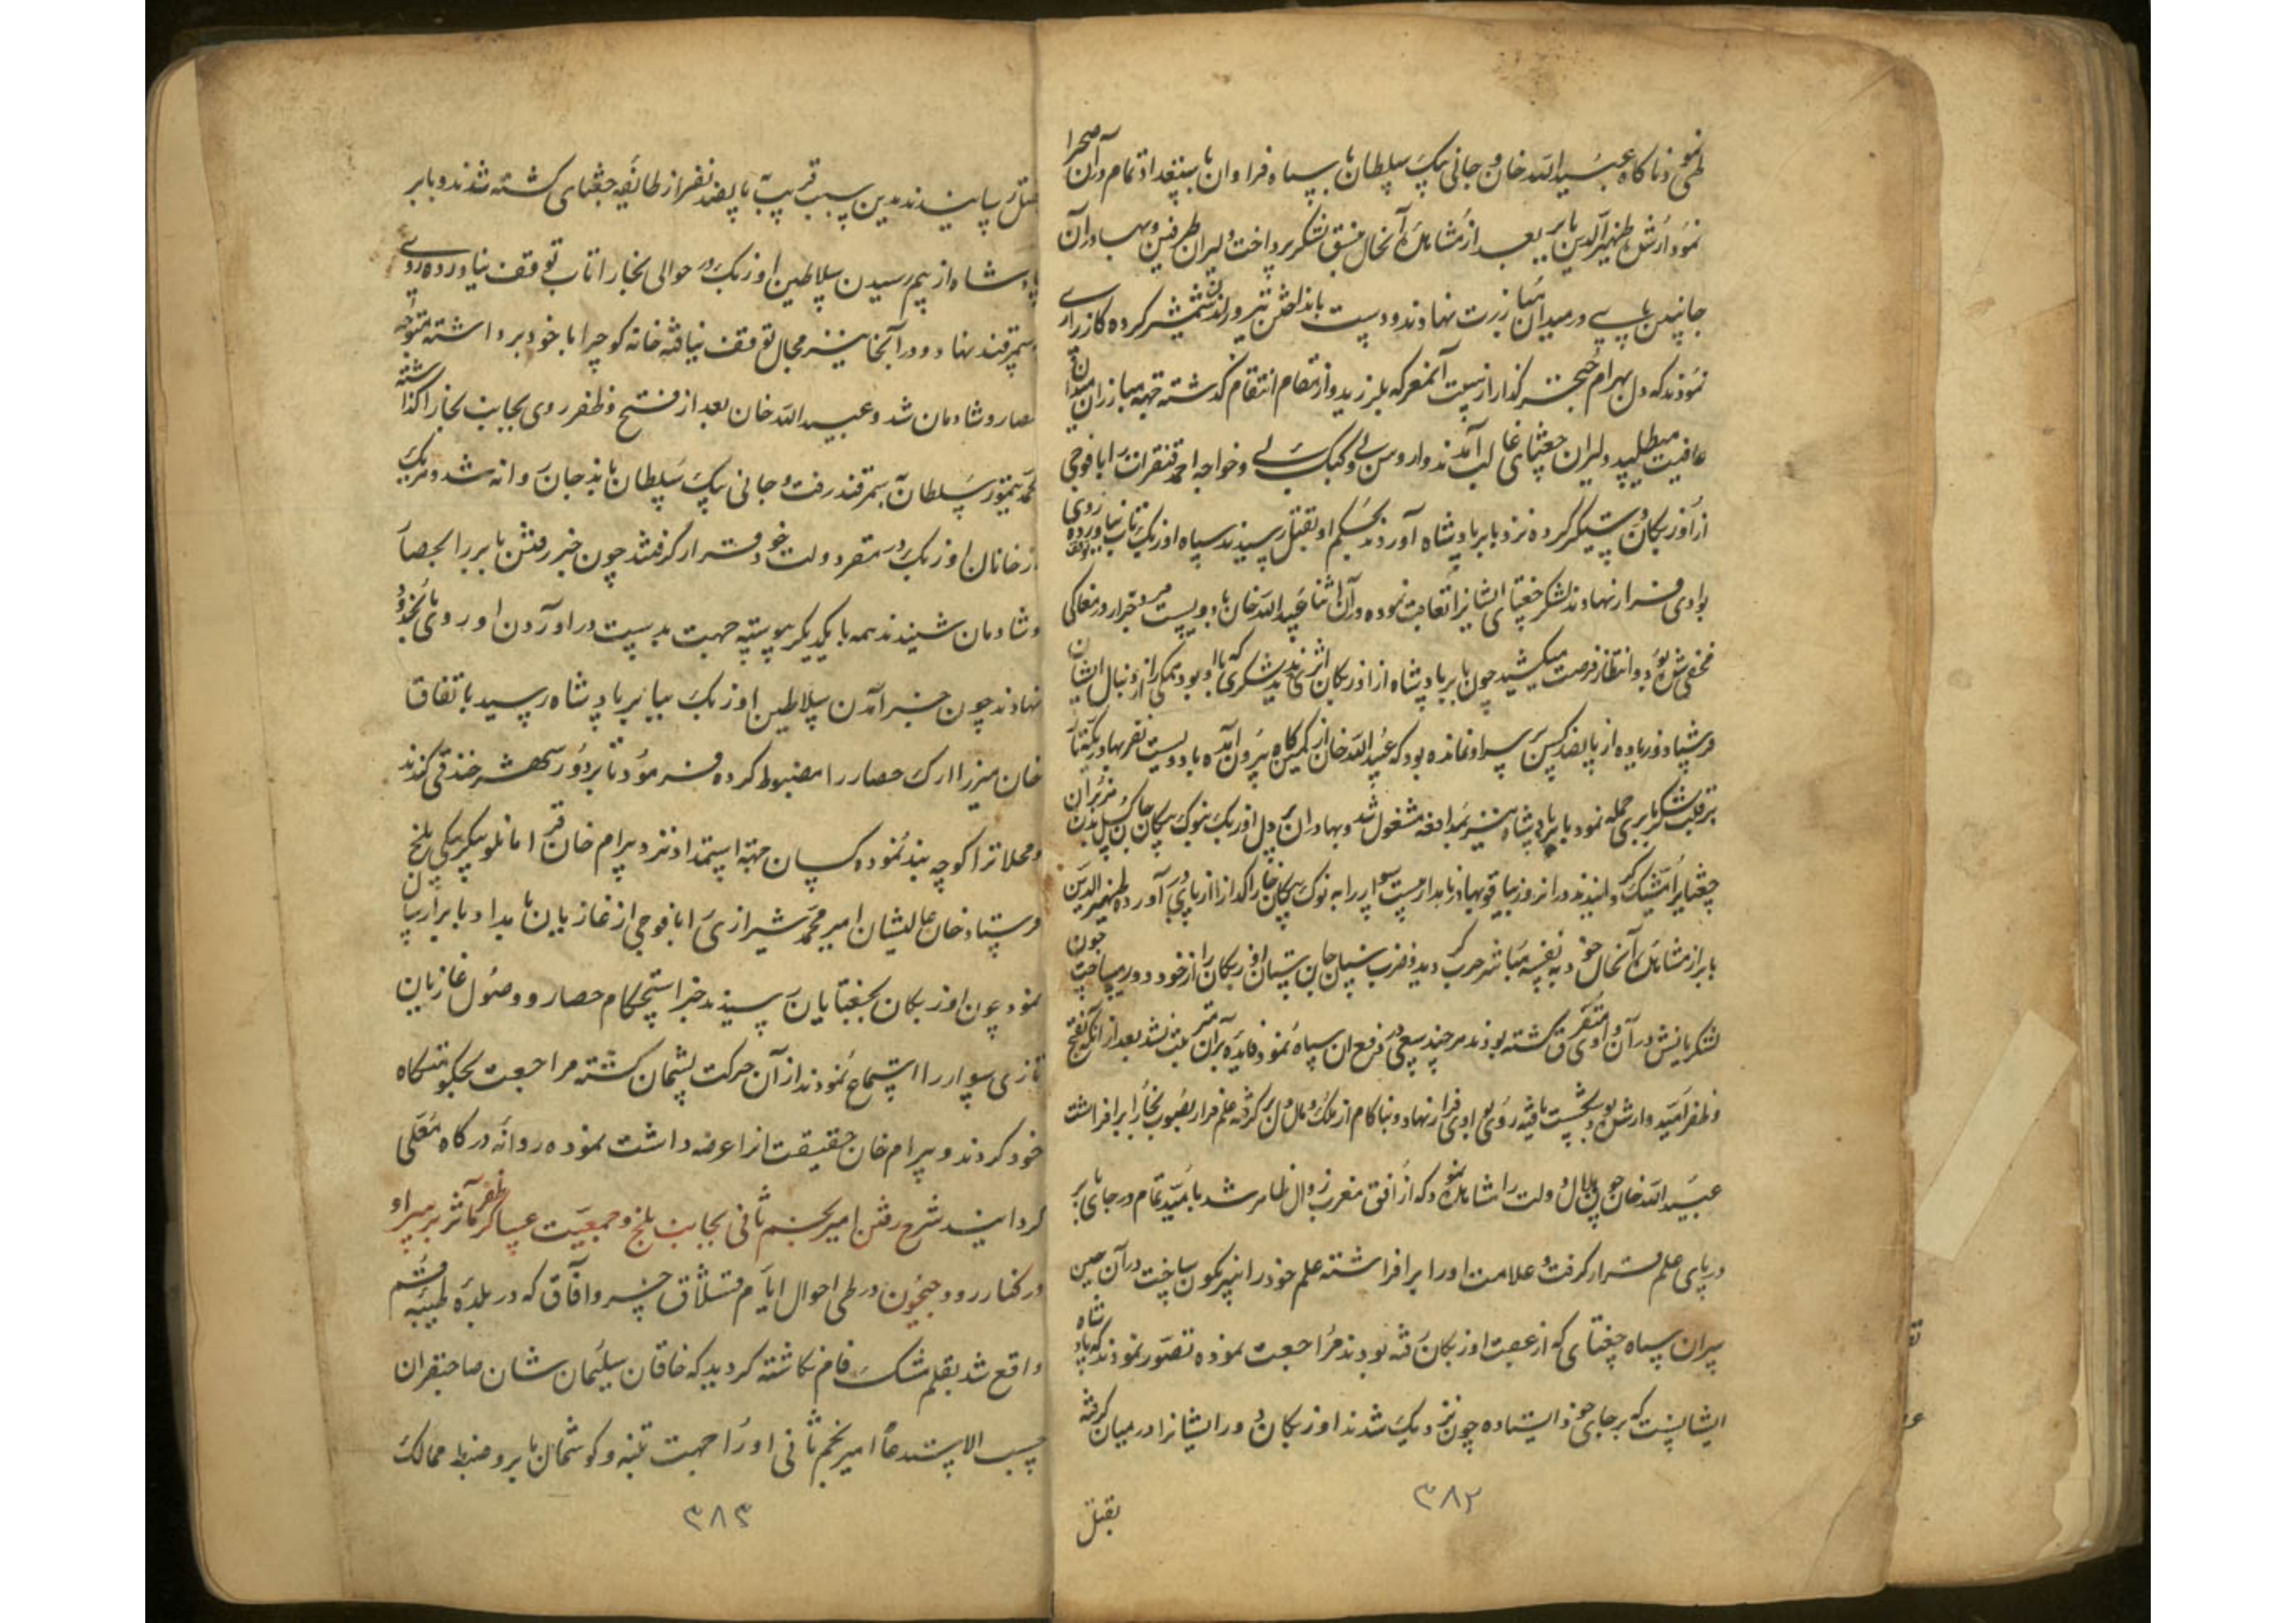 طی نمود ناگاه عبیدالله خان و جانی بیک سلطان با سپاه فراوان باستعداد تمام در آن صحرا
نمودار شد ظهیرالدین بابر بعد از مشاهده آنحال بنسق لشکر پرداخت دلیران طرفین و بهادران
جانبین پای در میدان مبارزت نهادند و دست بانداختن تیر و راندن شمشیر کرده کارزاری
نمودند که دل بهرام خنجر گذار از نهیب آنمعرکه بلرزید و از مقام انتقام گذشته جهة مبارزان میدان
عافیت میطلبید دلیران جغتای غالب آمدند و اروس بی و کپک بی و خواجه احمد قنقرات را با فوجی
از اوزبکان دستگیر کرده نزد بابر پادشاه آوردند بحکم او بقتل رسیدند سپاه اوزبک تاب نیاورده روی
بوادی فرار نهادند لشکر جغتای ایشانرا تعاقب نموده در آن اثنا عبیدالله خان با دویست مرد جرار در مغاکی
مخفی شده بود و انتظار فرصت میکشید چون بابر پادشاه از اوزبکان اثری ندید لشکری که با او بود تمامی را از دنبال ایشان
فرستاد و زیاده از پانصد کس بر سر او نمانده بود که عبیدالله خان از کمینگاه بیرون آمده با دویست نفر بهادر یکتا
بر قلب لشکر بابری حمله نمود بابر پادشاه نیز بمدافعه مشغول شد و بهادران پر دل اوزبک بنوک پیکان
جغتایرا مشبک گردانیدند در آنروز بهادر نامدار بیست سوار را به نوک پیکان از پای در آورده ظهیرالدین
بابر از مشاهده آنحال خود به نفسه مباشر حرب گردید و بضرب سنان جان ستان اوزبکان را از خود دور میساخت چون
لشکریانش در آن وادی متفرق گشته بودند هر چند سعی در دفع آن سپاه نمود فایده بر آن مترتب نشد بعد از آنکه بفتح
و ظفر امیدوار شده بود شکست یافته روی بوادی فرار نهاد و ناکام از ملک و مال دل بر گرفته علم فرار بصوب بخارا بر افراشت
عبیدالله خان چون هلال دولت را مشاهده نمود که از افق مغرب زوال ظاهر شد بامید تمام در جای بابر
در پای علم قرار گرفت و علامت او را بر افراشته علم خود را نگون ساخت در آن حین
سپاه جغتای که از عقب اوزبکان رفته بودند مراجعت نموده تصور نمودند که پادشاه
ایشانست که بر جای خود ایستاده چون نزدیک شدند اوزبکان دور ایشانرا در میان گرفته
بقتل
۳۸۲
بقتل رسانیدند بدین سبب قریب بپانصد نفر از طائفه جغتای کشته شدند و بابر
پادشاه از بیم رسیدن سلاطین اوزبک در حوالی بخارا تاب توقف نیاورده روی
بسمرقند نهاد و در آنجا نیز مجال توقف نیافته خانه کوچ را با خود برداشته متوجه
حصار و شادمان شد و عبیدالله خان بعد از فتح و ظفر روی بجانب بخارا گذاشته
محمد تیمور سلطان بسمرقند رفت و جانی بیک سلطان باندجان روانه شد و هر یک
از خانان اوزبک در مقر دولت خود قرار گرفتند چون خبر رفتن بابر را بحصار
و شادمان شنیدند همه با یکدیگر پیوسته جهت بدست در آوردن او روی بانحدود
نهادند چون خبر آمدن سلاطین اوزبک ببابر پادشاه رسید باتفاق
خان میرزا ارک حصار را مضبوط کرده فرمود تا بر دور شهر خندقی کندند
و محلات را کوچه بند نموده کسان جهة استمداد نزد بیرام خان قرامانلو بیگربیگی بلخ
فرستاد خان عالیشان امیر محمد شیرازی را با فوجی از غازیان بامداد بابر ارسال
نمود چون اوزبکان بجغتایان رسیدند خبر استحکام حصار و وصول غازیان
تازی سوار را استماع نمودند از آن حرکت پشیمان گشته مراجعت بحکومتگاه
خود کردند و بیرام خان حقیقت آنرا عرضه داشت نموده روانه درگاه معلی
گردانید شرح رفتن امیر نجم ثانی بجانب بلخ و جمعیت عساکر ظفر مآثر بر سر او
در کنار رود جیحون در طی احوال ایام قشلاق خسرو آفاق که در بلده طیبه قم
واقع شد بقلم مشک فام نگاشته گردید که خاقان سلیمان شان صاحبقران
حسب الاستدعا امیر نجم ثانی او را جهت تنبیه و گوشمال بابر و ضبط ممالک
۳۸۳